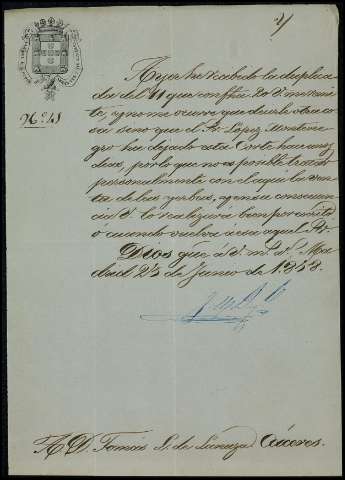 Ayer he recibido la duplica
da del 11 que con fha 20 V. me remi
te, y no me ocurre que decirle otra co
sa sino que el Sr. Lopez Montene
gro ha dejado esta Corte hace unos
dias, por lo que no es posible tratar
personalmente con el aqui la ven
ta de las yerbas, y en su consecuen
cia V. lo realizará bien por escrito
ó cuando vuelva á esa aquel Sr.
Dios gue á V. m. a. Ma
drid 23 de Junio de 1858.
A D. Tomás S. de Lanuza Cáceres.